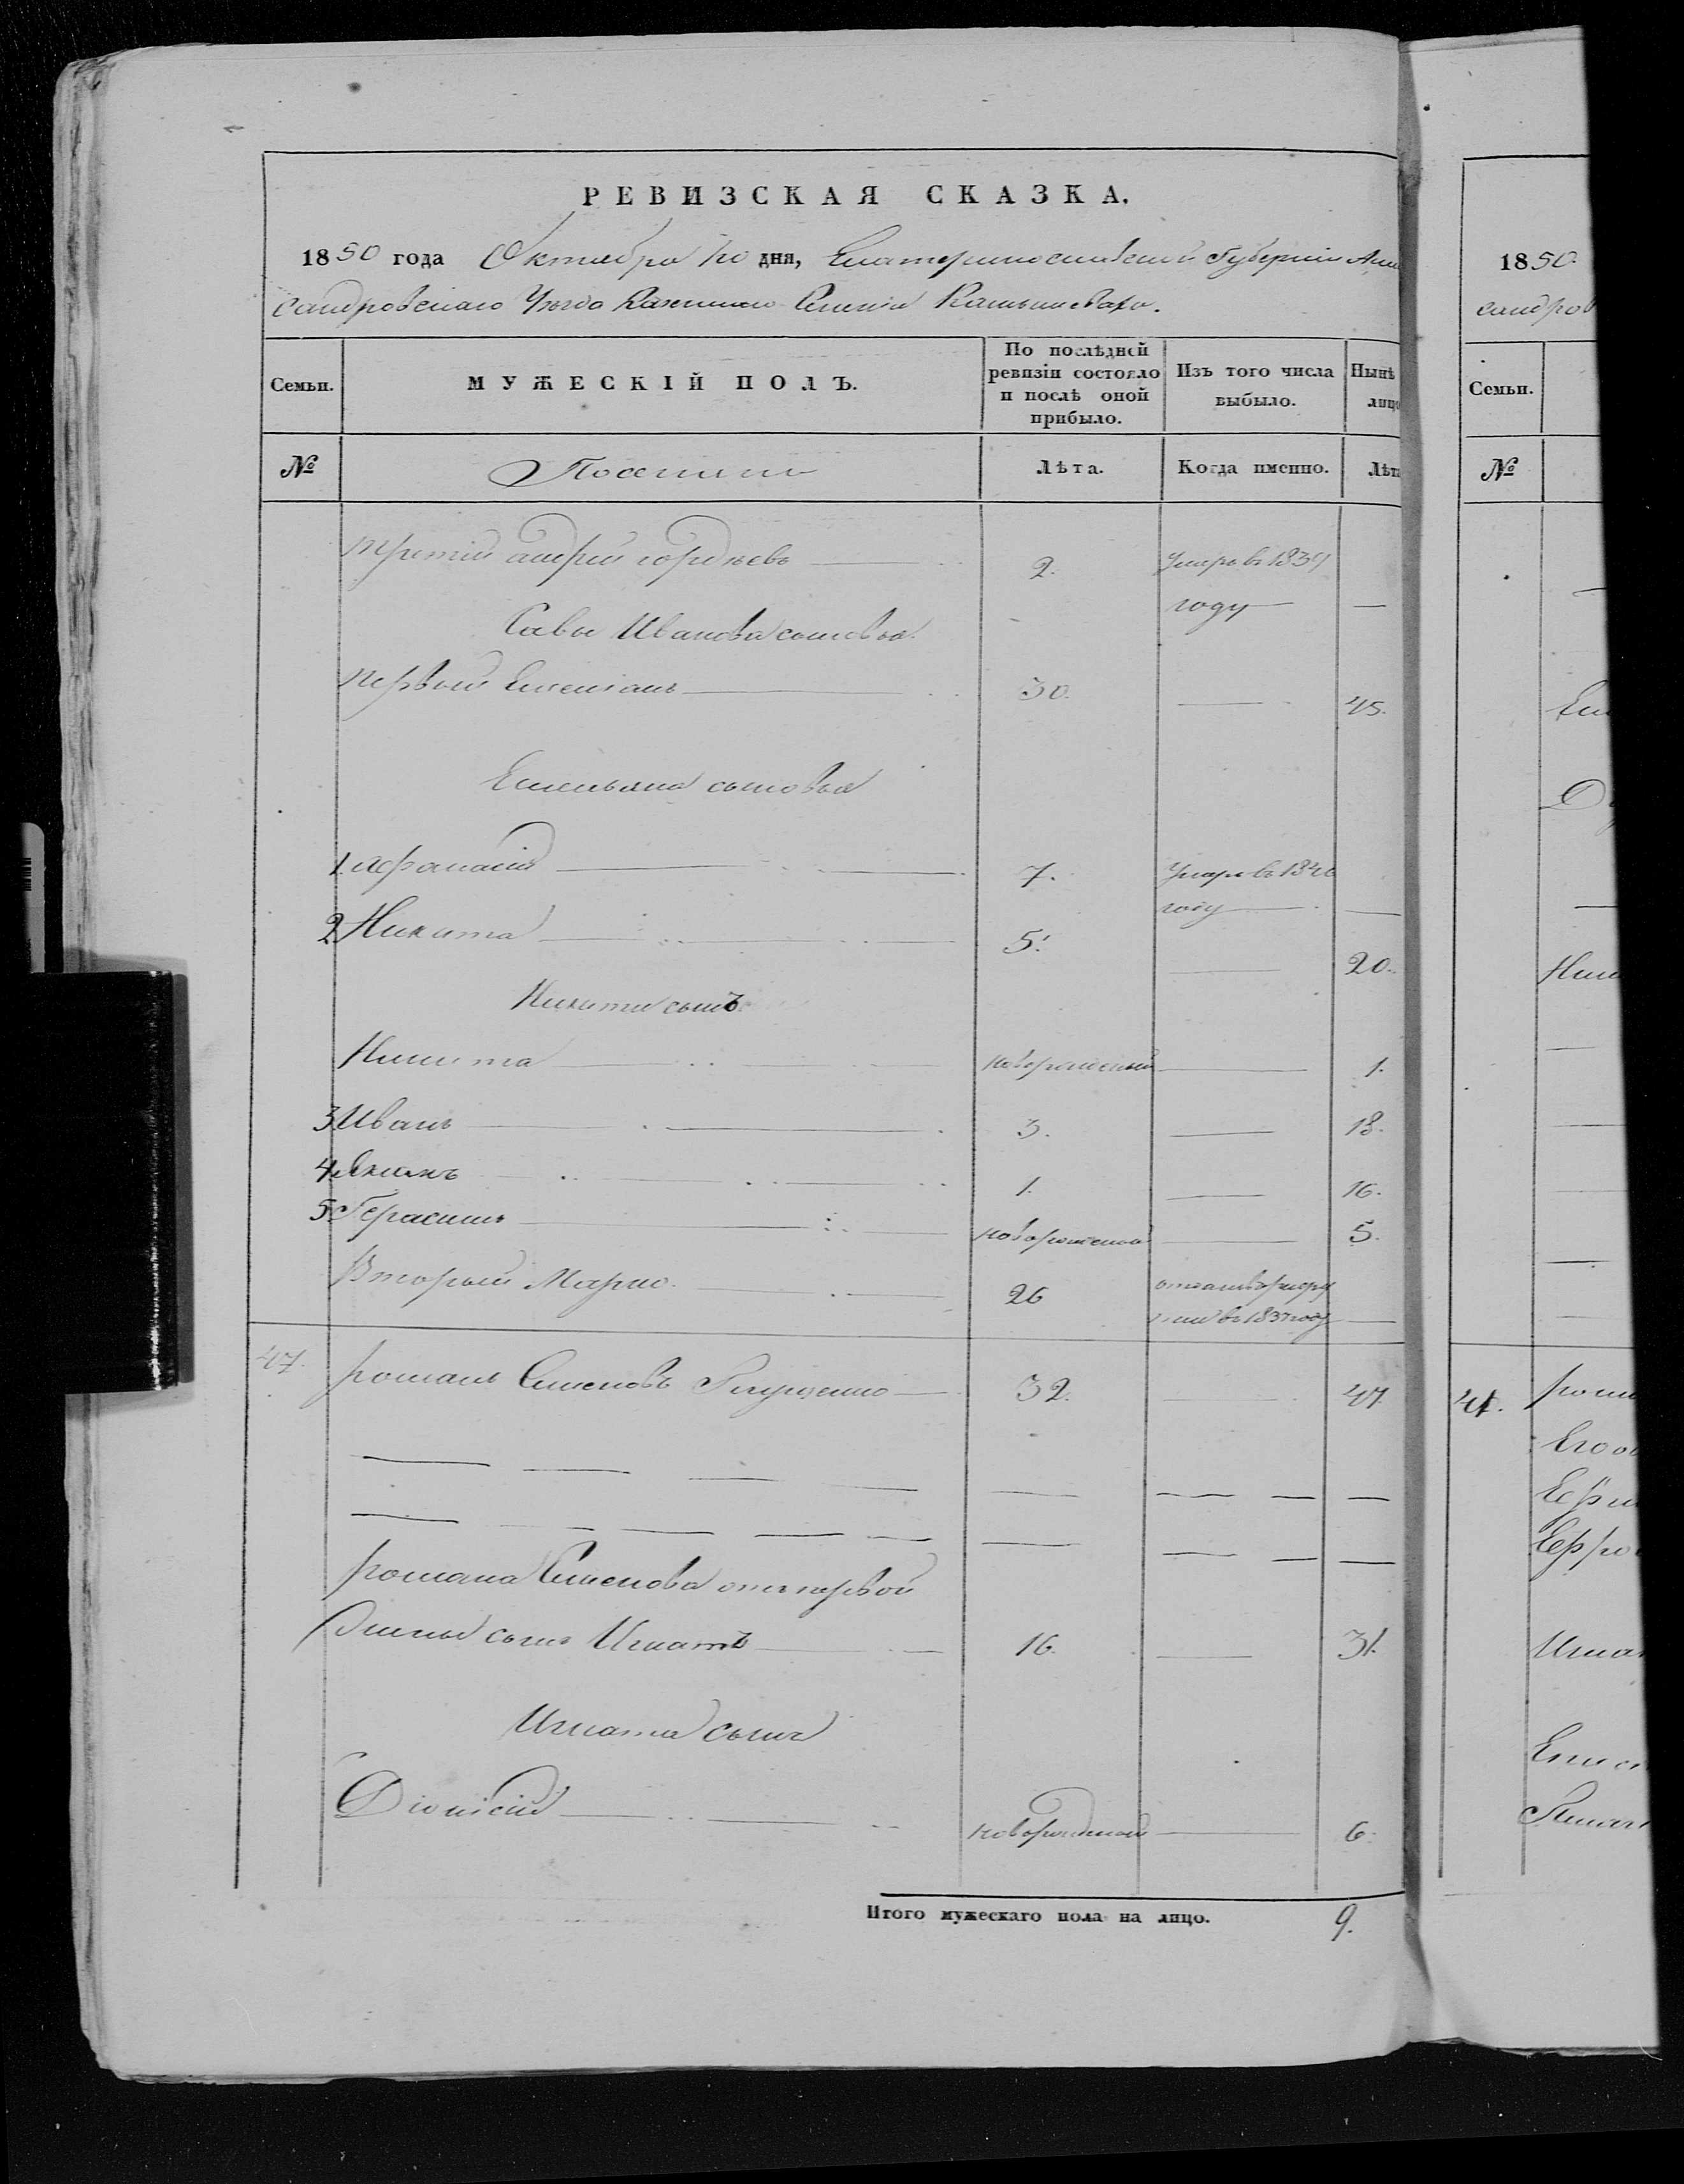 РЕВИЗСКАЯ СКАЗКА.
1850 года Октября 10 дня, Екатеринославской Губернии Алек
сандровскаго Уѣзда Казеннаго Селенія Камышевахи.
Семьи. МУЖЕСКІЙ ПОЛЪ. По послѣдней ревизіи состояло и послѣ оной прибыло. Изъ того числа выбыло. Нынѣ лицо
№ Поселяне Лѣта. Когда именно. Лѣт
третій андрей гордѣевъ 2. Умеръ въ 1839 году —
Савы Иванова сыновья
первый Емеліанъ 30. — 45.
Емельяна сыновья
1. Афанасій 7. Умеръ въ 1840 году —
2 Никита 5. — 20.
Никиты сынъ
Никита новорожденный — 1.
3 Иванъ 3. — 18.
4 1. — 16.
5 Герасимъ новорожденный — 5.
Вторый Марко 26 въ 1837 году —
47. романъ Семеновъ 32. — 47
романа Семенова отъ первой
жены сынъ Игнатъ 16. — 31.
Игната сынъ
Діонисій новорожденный — 6.
Итого мужескаго пола на лицо. 9.
1850.
сандров
Семьи.
№